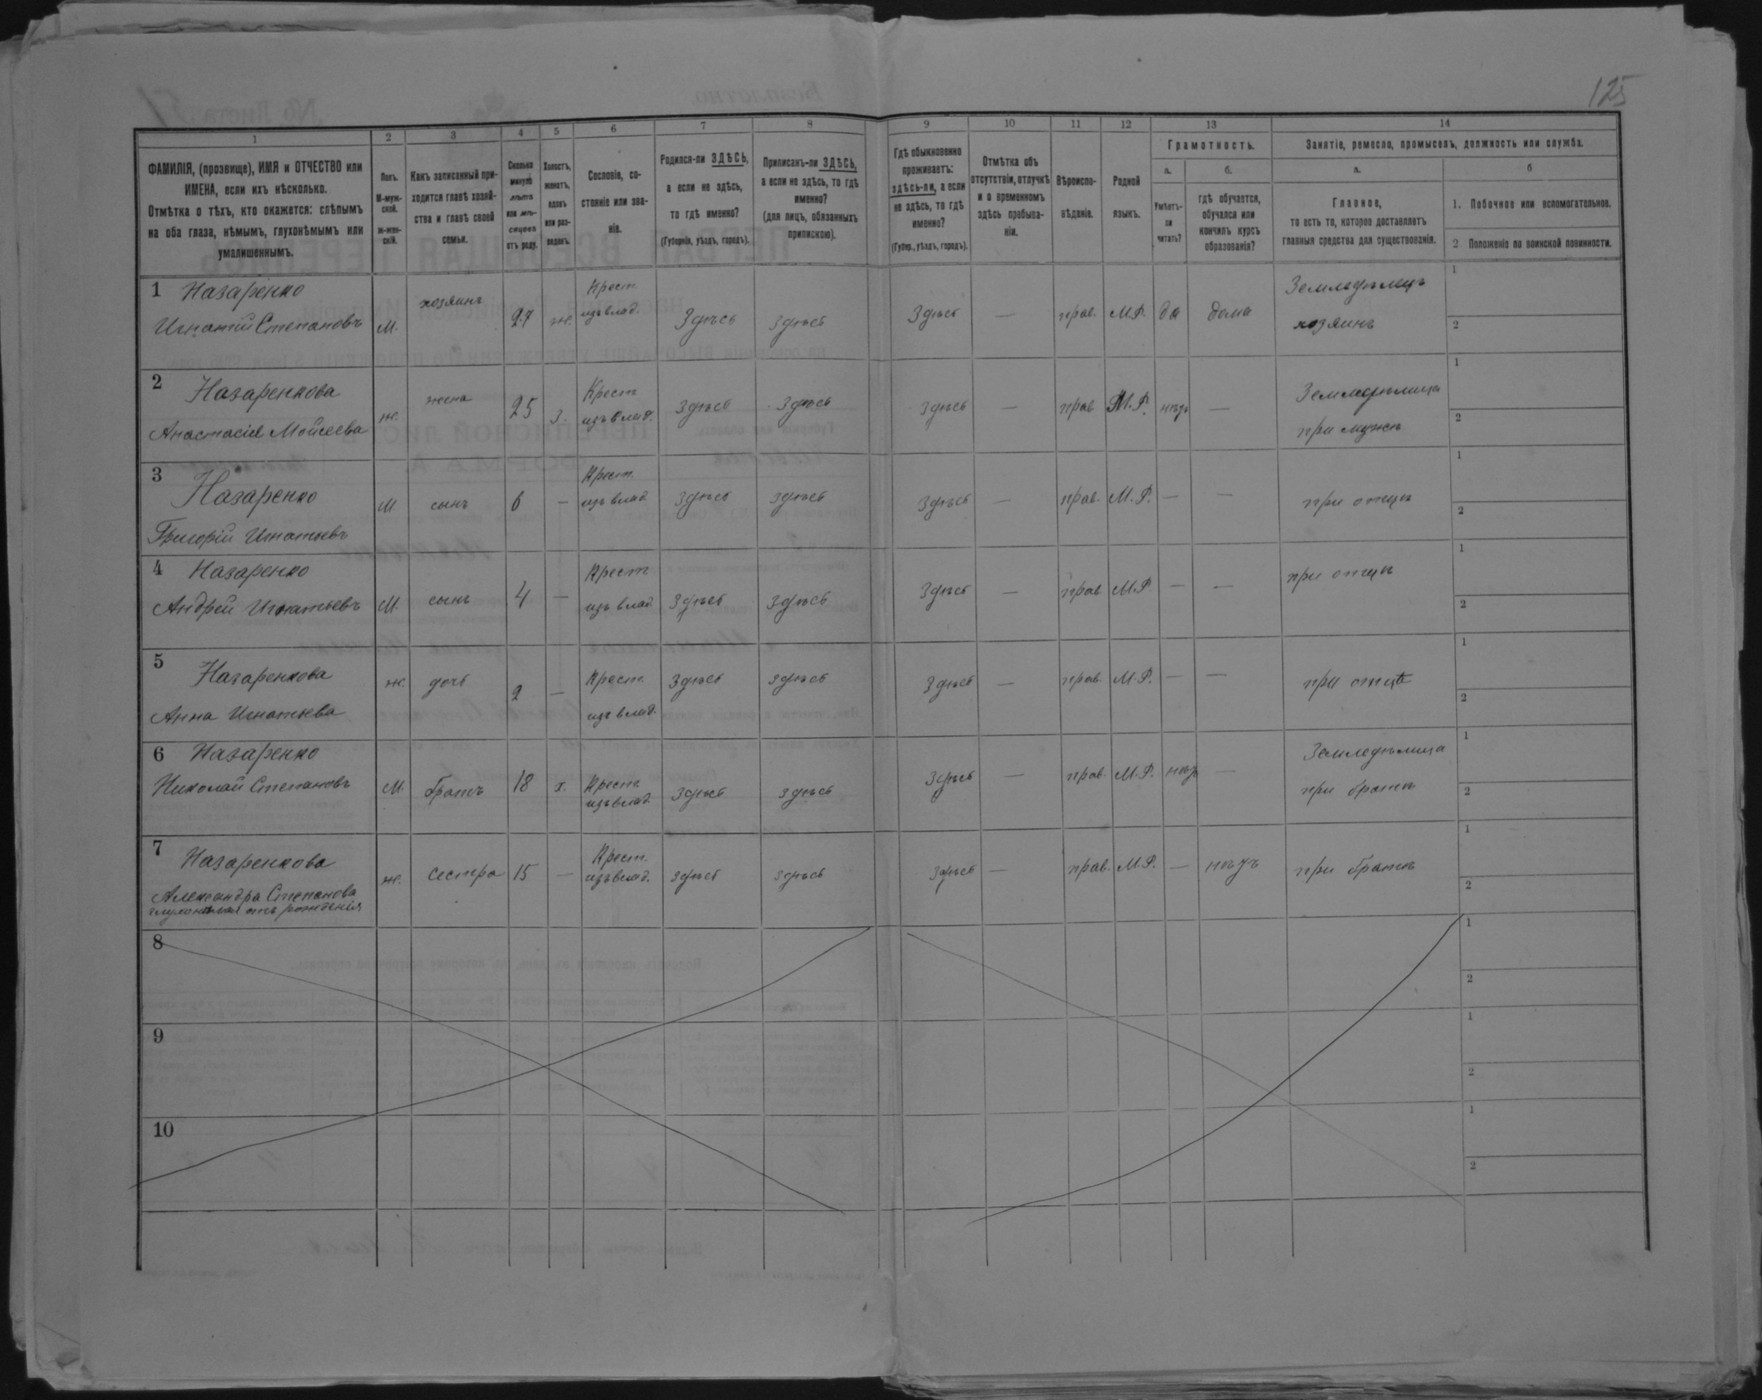 125
1
2
3
4
5
6
7
8
9
10
11
12
13
14
ФАМИЛІЯ, (прозвище), ИМЯ и ОТЧЕСТВО или
ИМЕНА, если ихъ нѣсколько.
Отмѣтка о тѣхъ, кто окажется: слѣпымъ
на оба глаза, нѣмымъ, глухонѣмымъ или
умалишеннымъ.
Полъ.
М-муж-
ской.
ж-жен-
скій.
Какъ записанный при-
ходится главѣ хозяй-
ства и главѣ своей
семьи.
Сколько
минуло
лѣтъ
или мѣ-
сяцевъ
отъ роду.
Холостъ,
женатъ,
вдовъ
или раз-
веденъ.
Сословіе, со-
стояніе или зва-
ніе.
Родился-ли ЗДѢСЬ,
а если не здѣсь,
то гдѣ именно?
(Губернія, уѣздъ, городъ).
Приписанъ-ли ЗДѢСЬ,
а если не здѣсь, то гдѣ
именно?
(для лицъ, обязанныхъ
припискою).
Гдѣ обыкновенно
проживаетъ:
здѣсь-ли, а если
не здѣсь, то гдѣ
именно?
(Губер., уѣздъ, городъ).
Отмѣтка объ
отсутствіи, отлучкѣ
и о временномъ
здѣсь пребыва-
ніи.
Вѣроиспо-
вѣданіе.
Родной
языкъ.
Грамотность.
а.
Умѣетъ-
ли
читать?
б.
гдѣ обучается,
обучался или
кончилъ курсъ
образованія?
Занятіе, ремесло, промыселъ, должность или служба.
а.
Главное,
то есть то, которое доставляетъ
главныя средства для существованія.
б
1. Побочное или вспомогательное.
2 Положеніе по воинской повинности.
1 Назаренко
Игнатій Степановъ М. хозяинъ 27 ж. Крест. изъ влад. Здѣсь здѣсь Здѣсь — прав. М.Р. да дома Земледѣлецъ хозяинъ 1 2
2 Назаренкова
Анастасія Мойсеева ж. жена 25 з. Крест изъ влад. Здѣсь Здѣсь Здѣсь — прав М.Р. нѣтъ — Земледѣлица при мужѣ 1 2
3 Назаренко
Григорій Игнатьевъ М сынъ 6 — Крест. изъ влад здѣсь здѣсь Здѣсь — прав. М.Р. — — при отцѣ 1 2
4 Назаренко
Андрей Игнатьевъ М. сынъ 4 — Крест изъ влад Здѣсь здѣсь Здѣсь — прав М.Р. — — при отцѣ 1 2
5 Назаренкова
Анна Игнатьева ж. дочь 2 — Крест. изъ влад. здѣсь здѣсь Здѣсь — прав М.Р. — — при отцѣ 1 2
6 Назаренко
Николай Степановъ М. братъ 18 х. Крест изъ влад. здѣсь здѣсь здѣсь — прав. М.Р. нѣтъ — Земледѣлица при братѣ 1 2
7 Назаренкова
Александра Степанова
глухонѣмая отъ рожденія ж. сестра 15 — Крест. изъ влад. здѣсь здѣсь здѣсь — прав. М.Р. — нѣтъ при братѣ 1 2
8 1 2
9 1 2
10 1 2